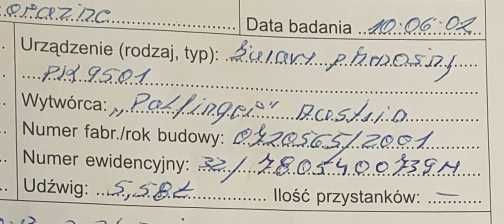 Data badania 10.06.02
Urządzenie (rodzaj, typ): Żuraw przenośny
PK 9501
Wytwórca: „Palfinger" Austria
Numer fabr./rok budowy: 0720565/2001
Numer ewidencyjny: 32/7805400739M
Udźwig: 5,58t Ilość przystanków: —